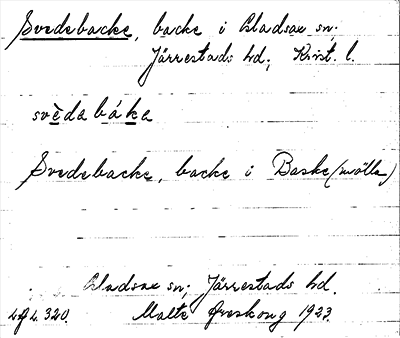 Svedebacke, backe i Gladsax sn;
Järrestads hd., Krist. l.
svèdabáka
Svedebacke, backe i Baske(mölla)
Gladsax sn; Järrestads hd.
Malte Areskoug 1923.